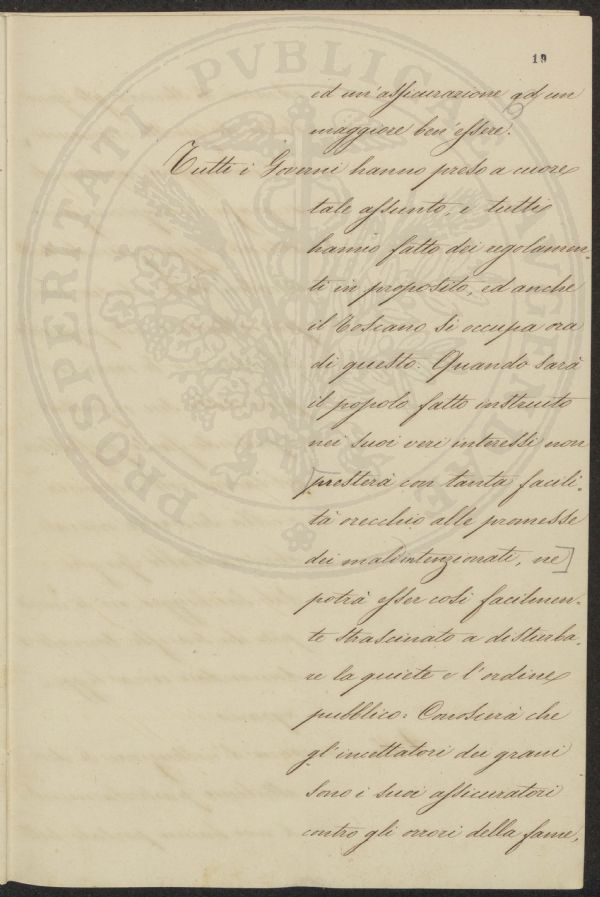 19
ed un' assicurazione ad un
maggiore ben' essere.
Tutti i Governi hanno preso a cuore
tale assunto, e tutti
hanno fatto dei regolamen-
ti in proposito, ed anche
il Toscano si occupa ora
di questo. Quando sarà
il popolo fatto instruito
nei suoi veri interessi non
[presterà con tanta facili-
tà orecchio alle promesse
dei malintenzionati, ne]
potrà esser così facilmen-
te strascinato a disturba-
re la quiete e l'ordine
pubblico: Conoscerà che
gl'incettatori dei grani
sono i suoi assicuratori
contro gli orrori della fame,
PROSPERITATI PVBLICAE AVGENDAE